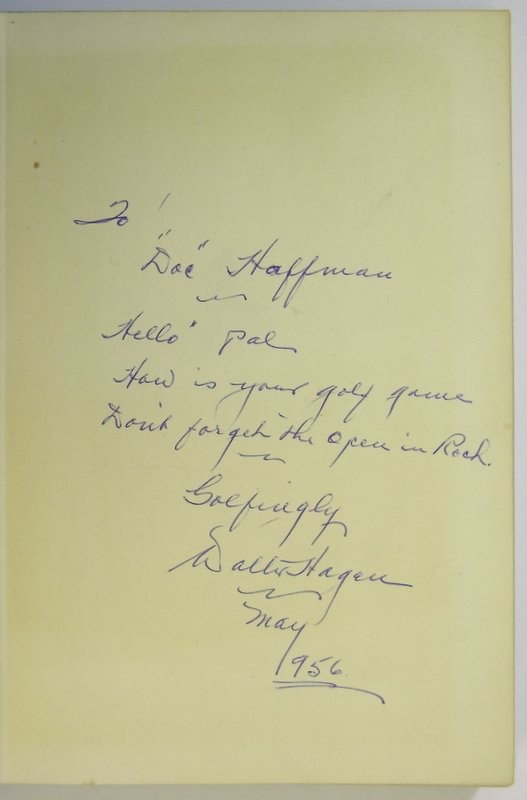 To
"Doc" Haffman
Hello" Pal
How is your golf game
Don't forget the Open in Roch.
Golfingly
Walter Hagen
May
1956